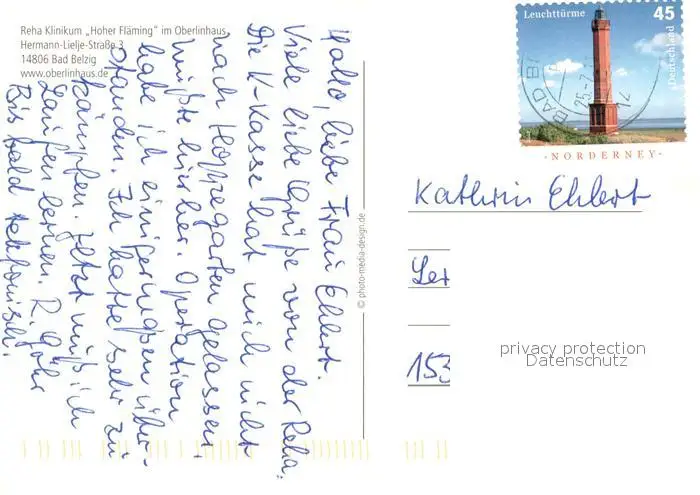 Reha Klinikum „Hoher Fläming" im Oberlinhaus
Hermann-Lielje-Straße 3
14806 Bad Belzig
www.oberlinhaus.de
Hallo, liebe Frau Ehlert.
Viele liebe Grüße von der Reha.
Die K-Kasse hat mich nicht
nach Hoppegarten gelassen,
mußte hierher. Operation
habe ich einigermaßen über-
standen. Ich hatte sehr zu
kämpfen. Jetzt muß ich
Laufen lernen. R. Gohr
Bis bald telefonisch.
© photo-media-design.de
Leuchttürme 45
Deutschland
NORDERNEY
BAD BE
25.-7.
12
Kathrin Ehlert
Ler
153
privacy protection
Datenschutz